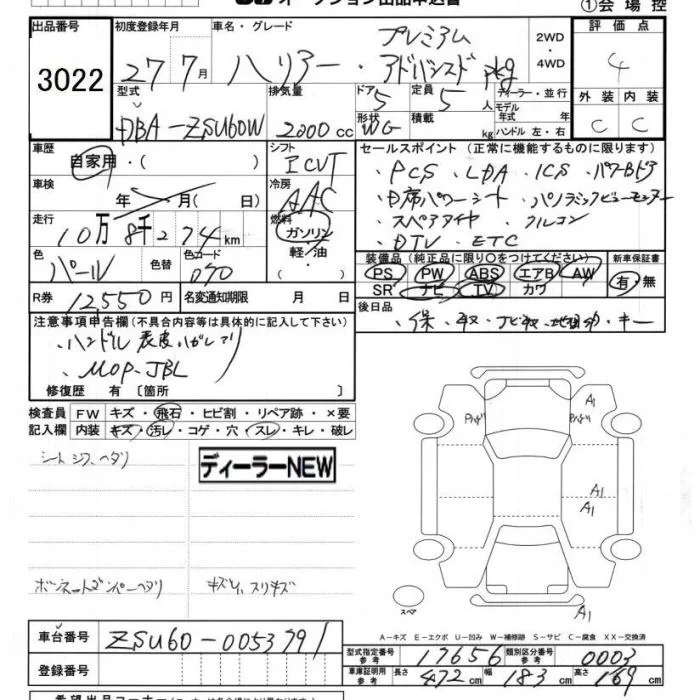 オークション出品申込書
①会場控
出品番号 3022
初度登録年月 27 7月
車名・グレード ハリアー・プレミアム アドバンスド pkg
2WD ・ 4WD
評価点 4
外装 C 内装 C
型式 DBA-ZSU60W
排気量 2000cc
ドア 5
定員 5人
形状 WG
積載 kg
ディーラー・並行
モデル年式 年式
ハンドル 左・右
車歴 自家用・( )
シフト ICVT
車検 年 月( 日)
冷房 AAC
走行 10万8千274km
燃料 ガソリン 軽・油 ・( )
色 パール
色替
色コード 070
R券 12,550円
名変通知期限 月 日
セールスポイント (正常に機能するものに限ります)
・PCS ・LDA ・ICS ・パワーBドア
・D席パワーシート ・パノラミックビューモニター
・スペアタイヤ ・クルコン
・DTV ・ETC
装備品(純正品に限り○をつけてください)
PS PW ABS エアB AW
SR ナビ TV カワ
新車保証書 有・無
後日品 ・保・取・ナビ取・地図・キー
注意事項申告欄(不具合内容等は具体的に記入して下さい)
・ハンドル表皮ハガレアリ
・MOP-JBL
修復歴 有 〔箇所 〕
検査員記入欄
FW キズ・飛石・ヒビ割・リペア跡・×要
内装 キズ・汚レ・コゲ・穴・スレ・キレ・破レ
シートシワ、ヘタリ
ディーラーNEW
ボンネットダンパーヘタリ
キズ小、スリキズ
A1
A1
A1
スペア
A1
A-キズ E-エクボ U-凹み W-補修跡 S-サビ C-腐食 XX-交換済
車台番号 ZSU60-0053791
登録番号
型式指定番号 参考 17656
類別区分番号 参考 0003
車庫証明用 参考 長さ 472cm 幅 183cm 高さ 169cm